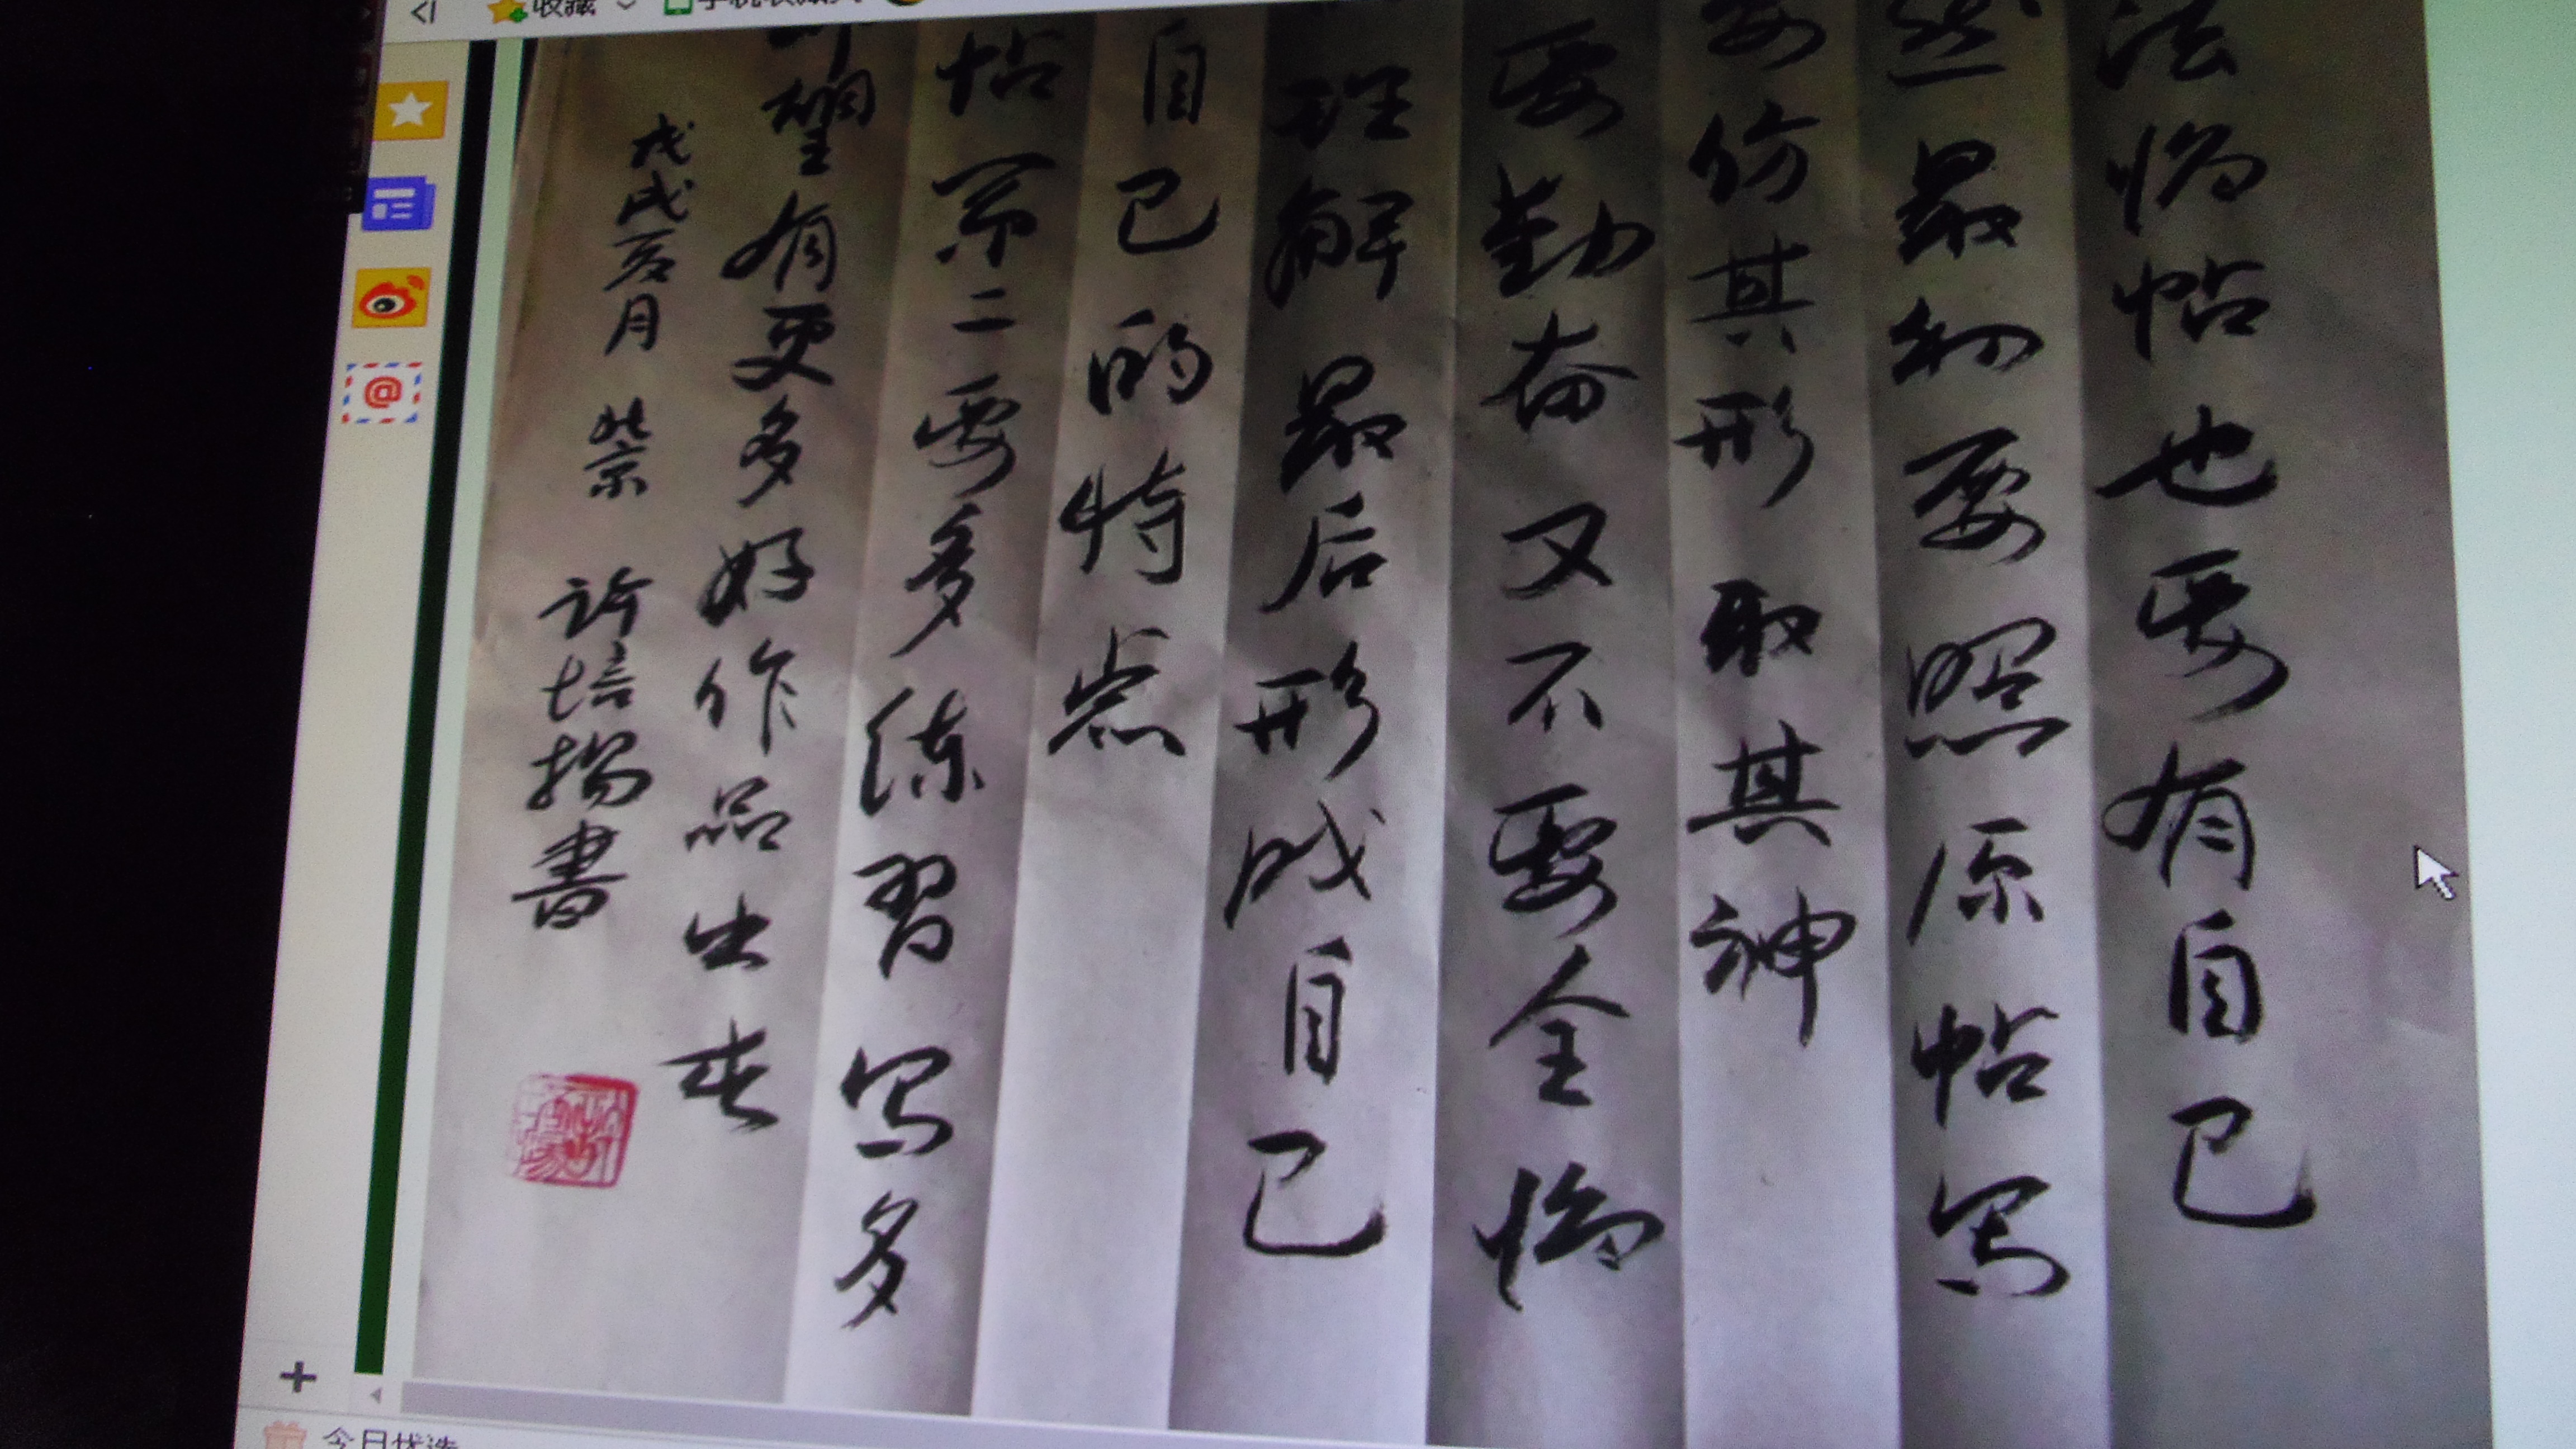 收藏
法临帖也要有自己
然最初要照原帖写
要仿其形取其神
要勤奋又不要全临
理解最后形成自己
自己的特点
帖第二要多练习写多
希望有更多好作品出来
戊戌亥月 紫京 许培扬書
今日优选